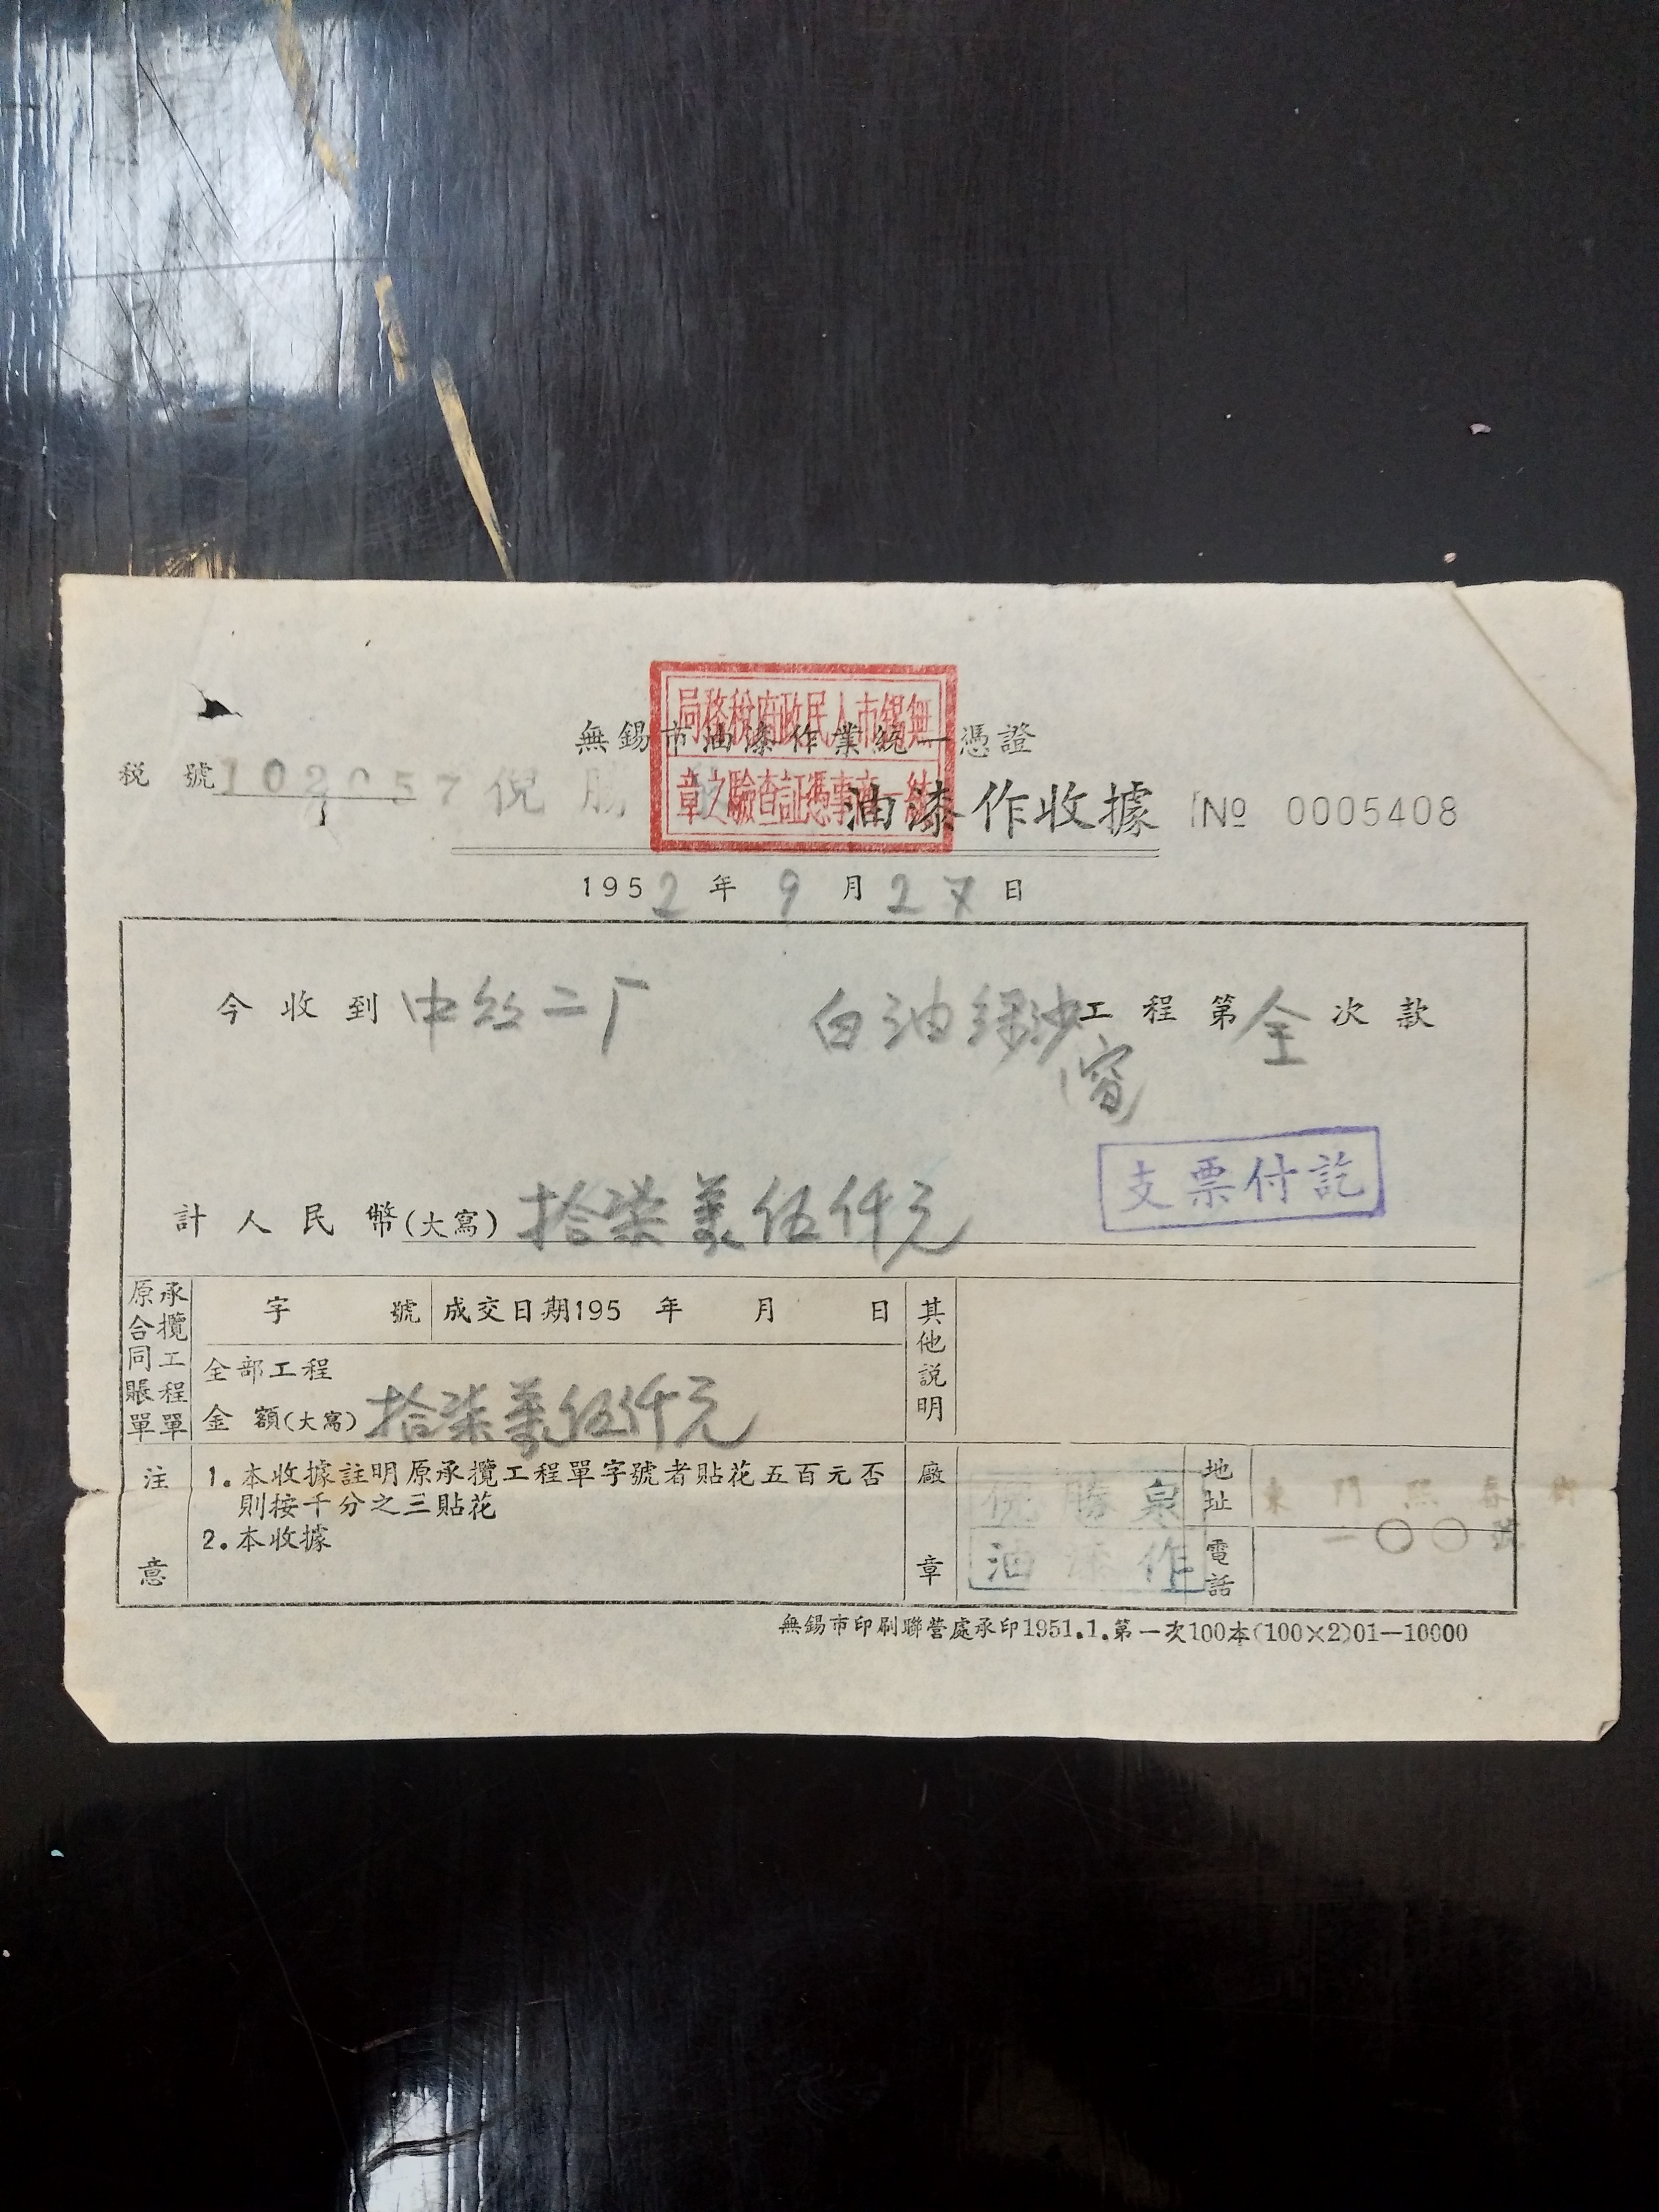 無錫市人民政府稅務局
統一商事憑証查驗之章
無錫市油漆作業統一憑證
稅號 102057 倪勝 油漆作收據 № 0005408
1952年9月27日
今收到 中絲二厂 白油绿沙窗 工程第全次款
支票付訖
計人民幣(大寫) 拾柒萬伍仟元
承攬工程單
原合同賬單
字 號 成交日期195 年 月 日
其他説明
全部工程
金額(大寫) 拾柒萬伍仟元
注意
1.本收據註明原承攬工程單字號者貼花五百元否
則按千分之三貼花
2.本收據
廠章
倪勝泉
油漆作
地址 東門熙春街
一〇〇號
電話
無錫市印刷聯營處承印1951.1.第一次100本(100×2)01—10000